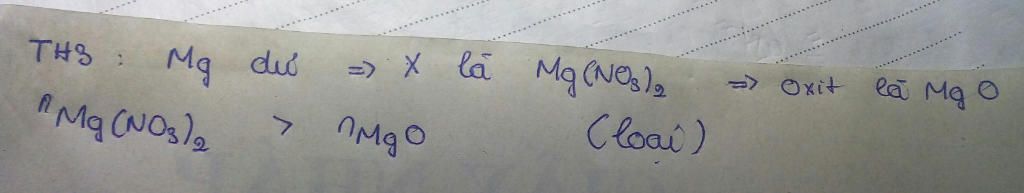 TH3 : Mg dư => X là Mg(NO3)2 => oxit là MgO
nMg(NO3)2 > nMgO (loại)